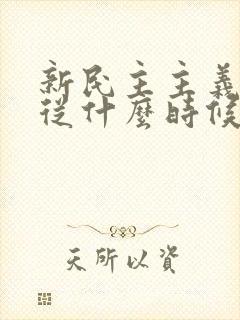 新民主主義
從什麼時候
天所以資